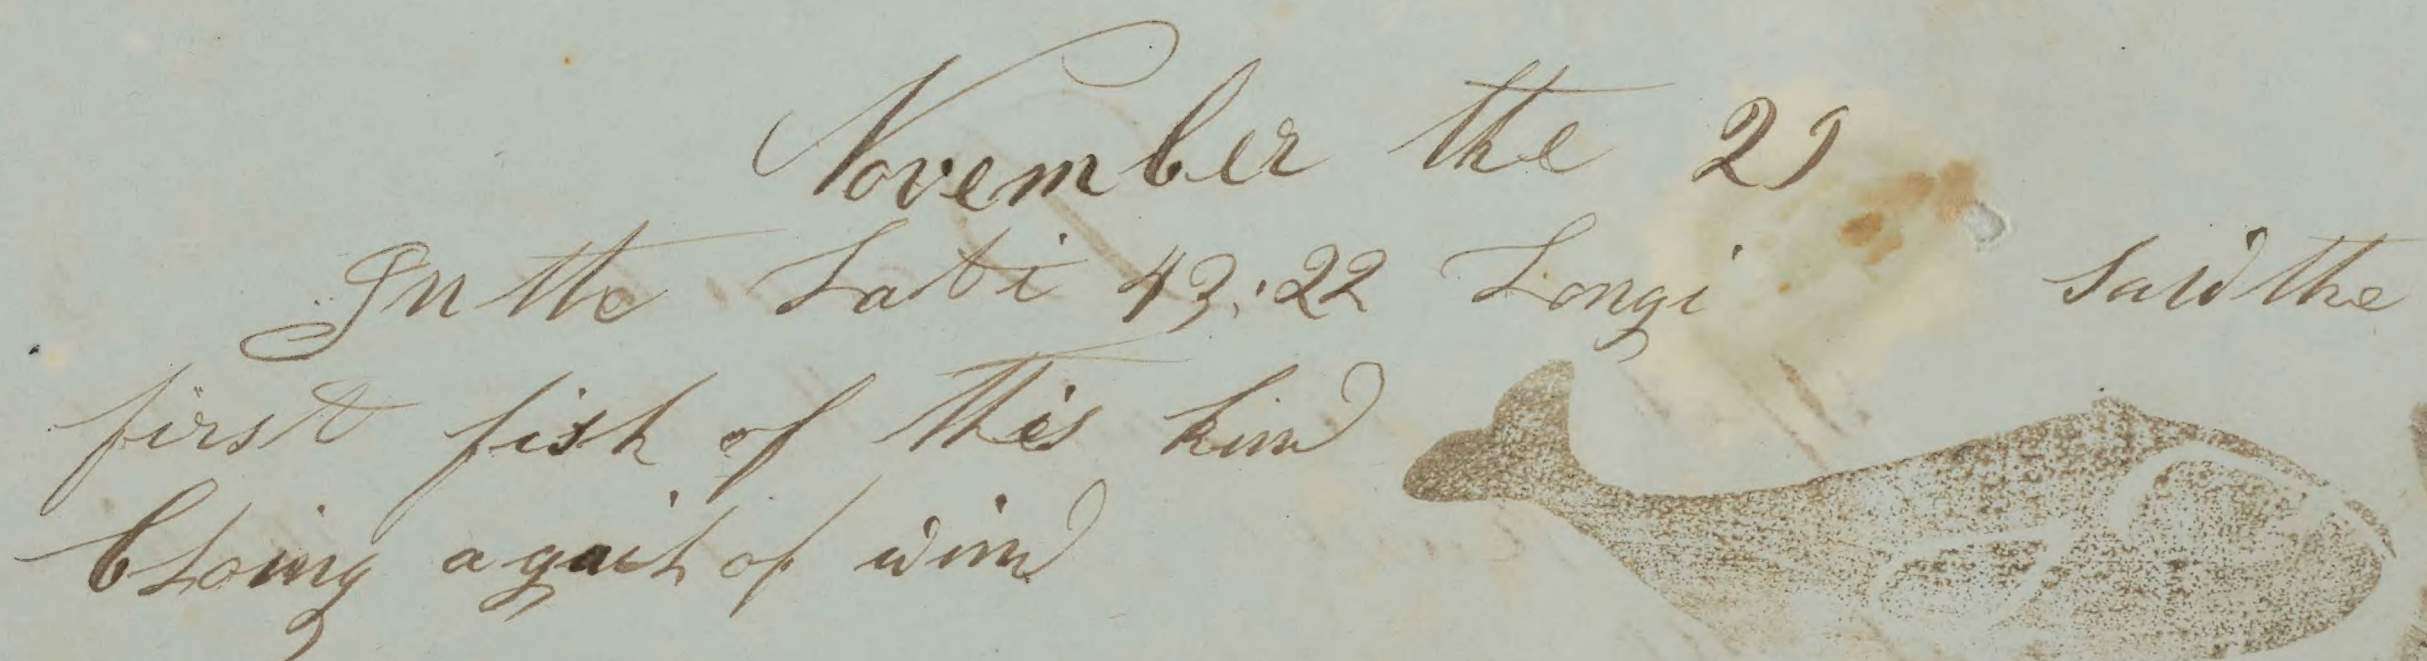 November the 29
In the Lati 43:22 Longi said the
first fish of this kind
bloing a gail of wind